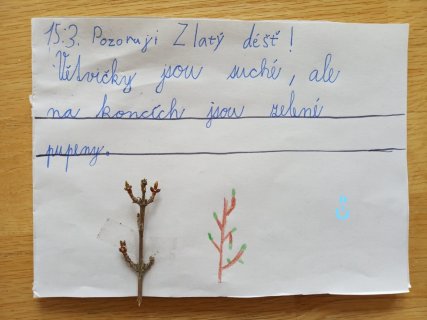 15.3. Pozoruji Zlatý déšť!
Větvičky jsou suché, ale
na koncích jsou zelené
pupeny.